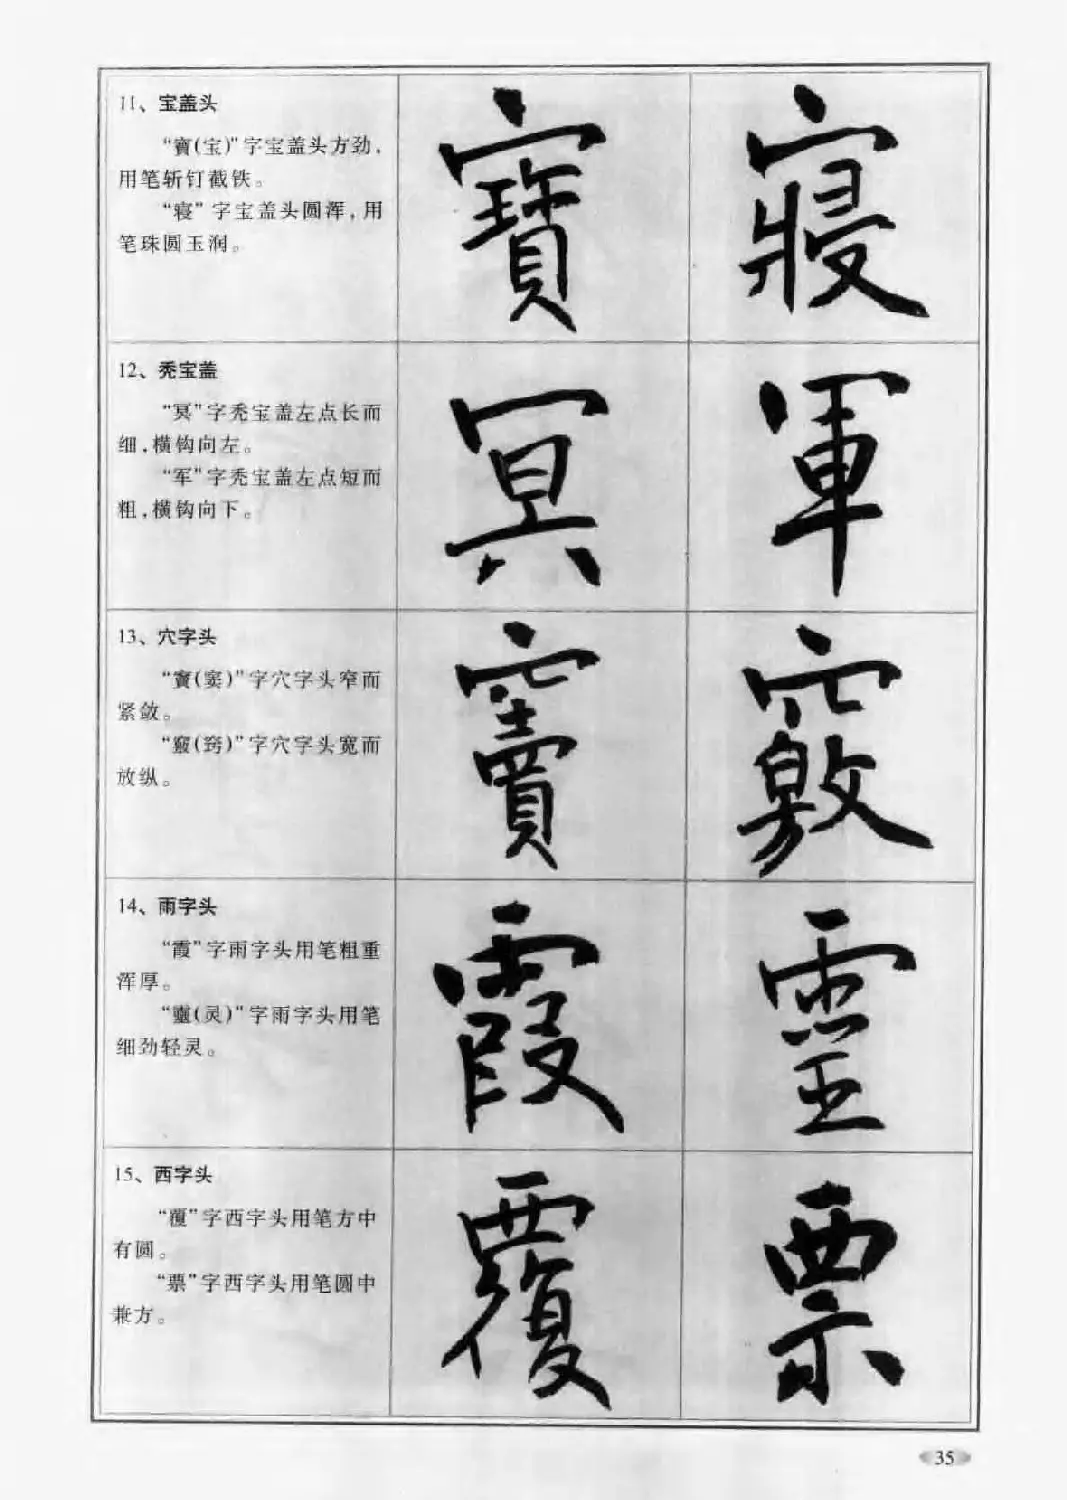 11、宝盖头
“寶(宝)”字宝盖头方劲,
用笔斩钉截铁。
“寝”字宝盖头圆浑,用
笔珠圆玉润。
寶
寢
12、秃宝盖
“冥”字秃宝盖左点长而
细,横钩向左。
“军”字秃宝盖左点短而
粗,横钩向下。
冥
軍
13、穴字头
“竇(窦)”字穴字头窄而
紧敛。
“竅(窍)”字穴字头宽而
放纵。
竇
竅
14、雨字头
“霞”字雨字头用笔粗重
浑厚。
“靈(灵)”字雨字头用笔
细劲轻灵。
霞
靈
15、西字头
“覆”字西字头用笔方中
有圆。
“票”字西字头用笔圆中
兼方。
覆
票
35